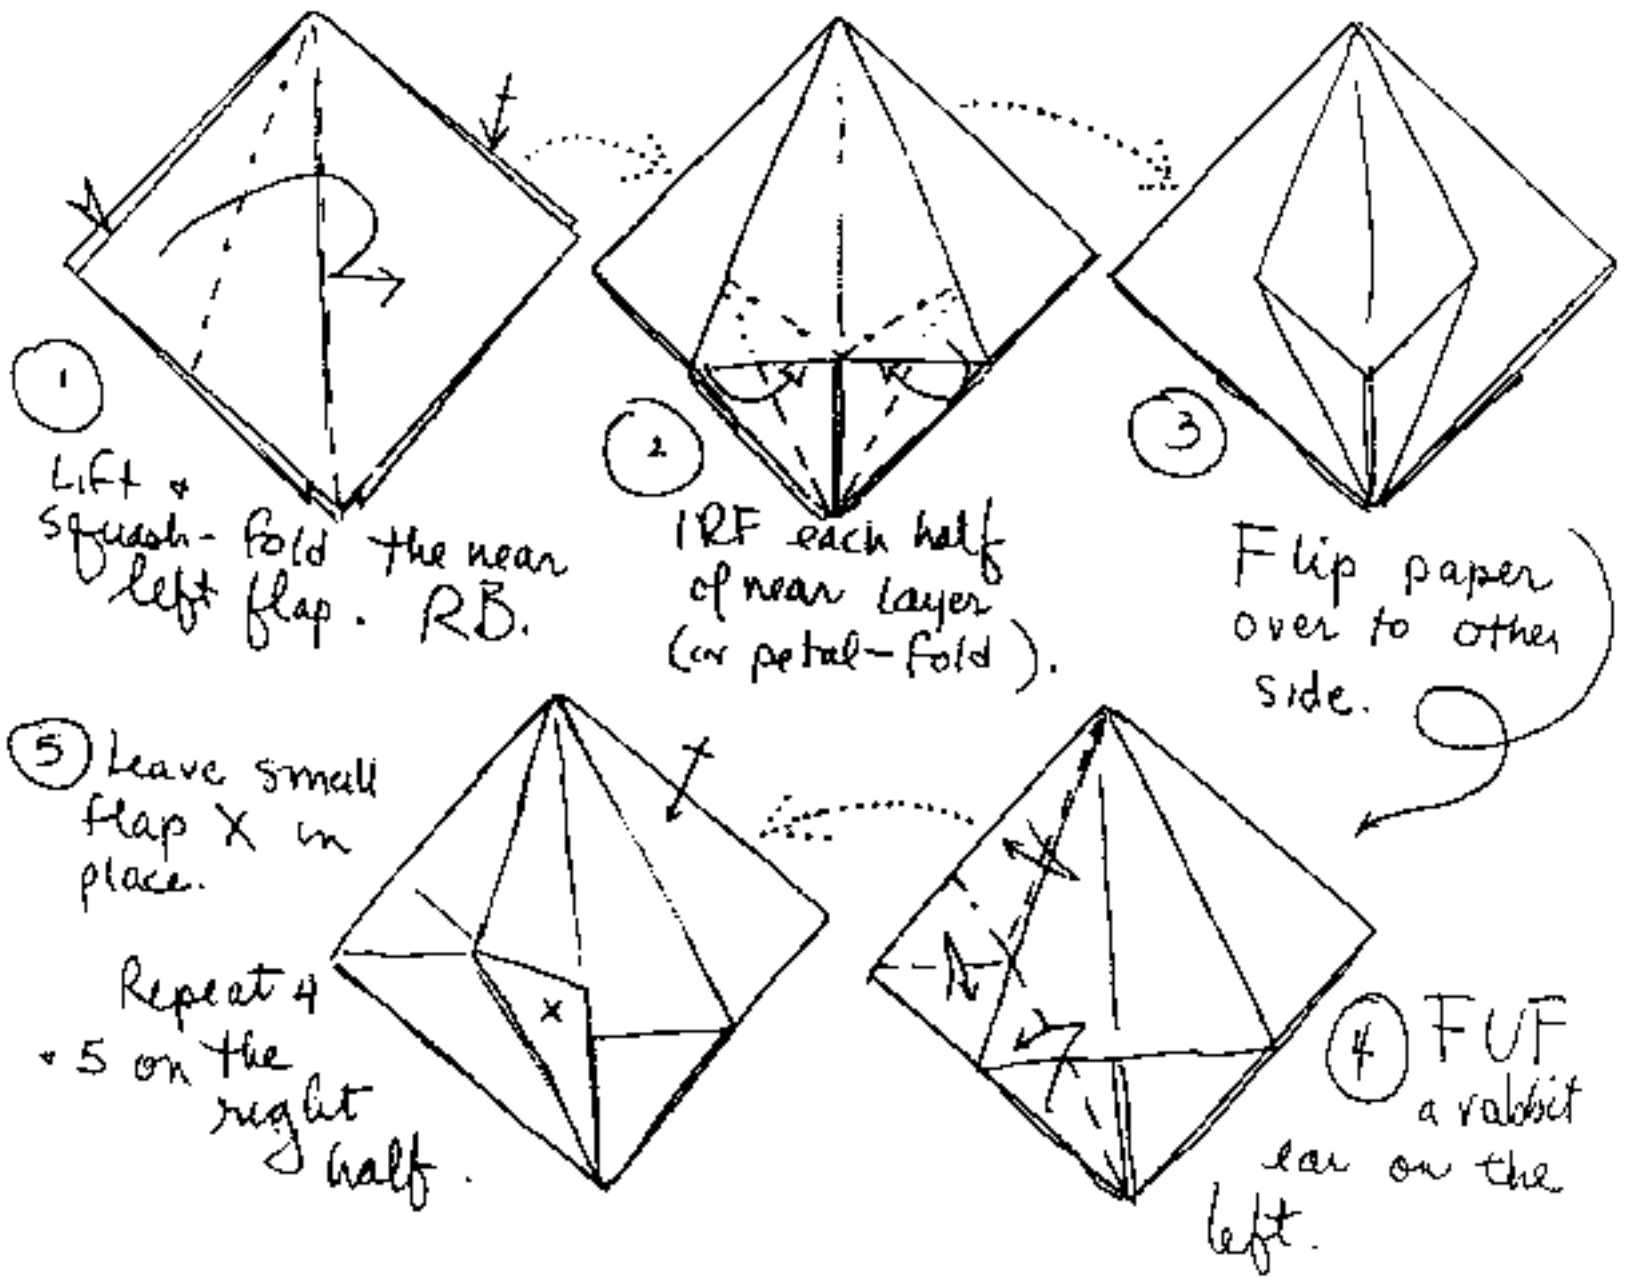 1
Lift &
squash-fold the near
left flap. RB.
2
IRF each half
of near layer
(or petal-fold).
3
Flip paper
over to other
side.
4 FUF
a rabbit
ear on the
left.
5 Leave small
flap X in
place.
Repeat 4
& 5 on the
right
half.
X